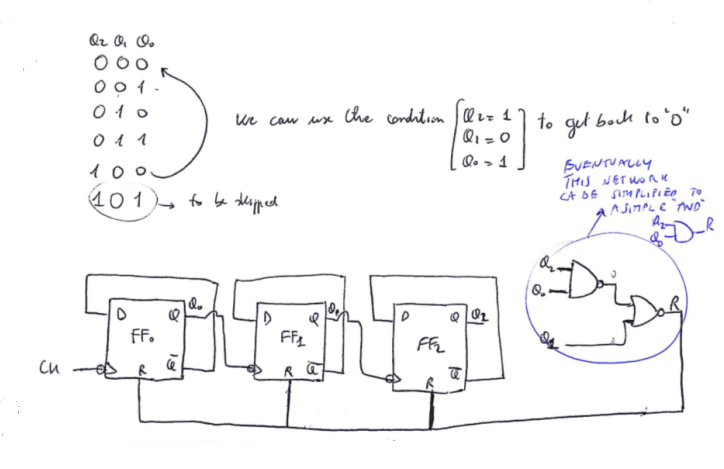 Q2 Q1 Q0
0 0 0
0 0 1
0 1 0
0 1 1
1 0 0
1 0 1 → to be skipped
We can use the condition [Q2 = 1 Q1 = 0 Q0 = 1] to get back to "0"
EVENTUALLY
THIS NETWORK
CA BE SIMPLIFIED TO
A SIMPLE "AND"
Q2 R
Q0
Q2 0
Q0 R
Q1 0
D Q Q0 D Q Q1 D Q Q2
FF0 FF1 FF2
CK R Q̅ R Q̅ R Q̅